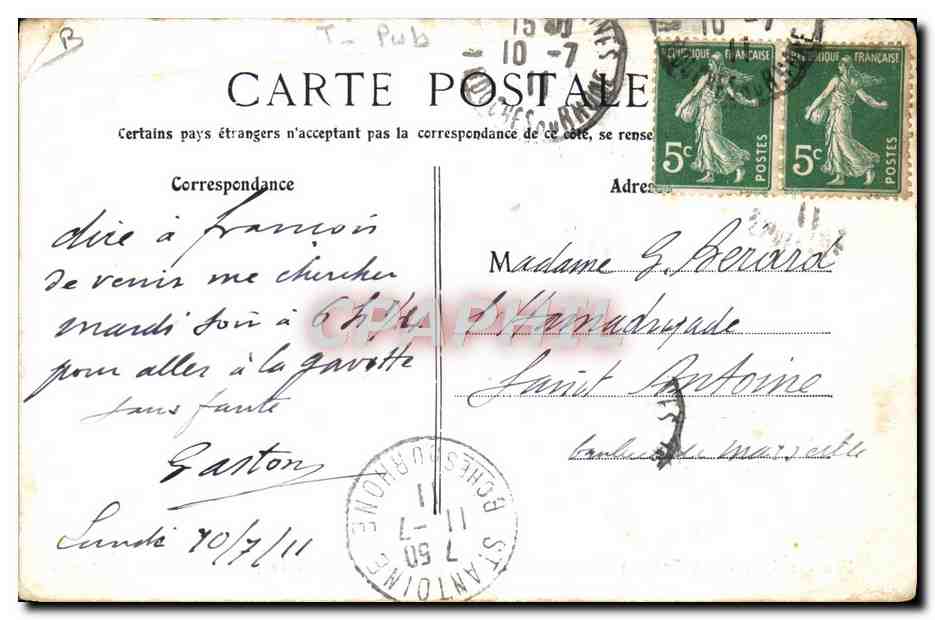 B
T- Pub
15
10-7
11
BOUCHES DU RHONE
10-7
11
BOUCHES DU RHONE
REPUBLIQUE FRANÇAISE
5c
POSTES
REPUBLIQUE FRANÇAISE
5c
POSTES
CARTE POSTALE
Certains pays étrangers n'acceptant pas la correspondance de ce côté, se rense
Correspondance
Adresse
dire à françois
de venir me chercher
mardi soir à 6 h 1/4
pour aller à la gavotte
sans faute
Gaston
Lundi 10/7/11
Madame G. Berard
l'Hamadryade
Saint Antoine
banlieue de marseille
CPAPHIL
11
ST ANTOINE
BCHES DU RHONE
7 50
11 -7
11